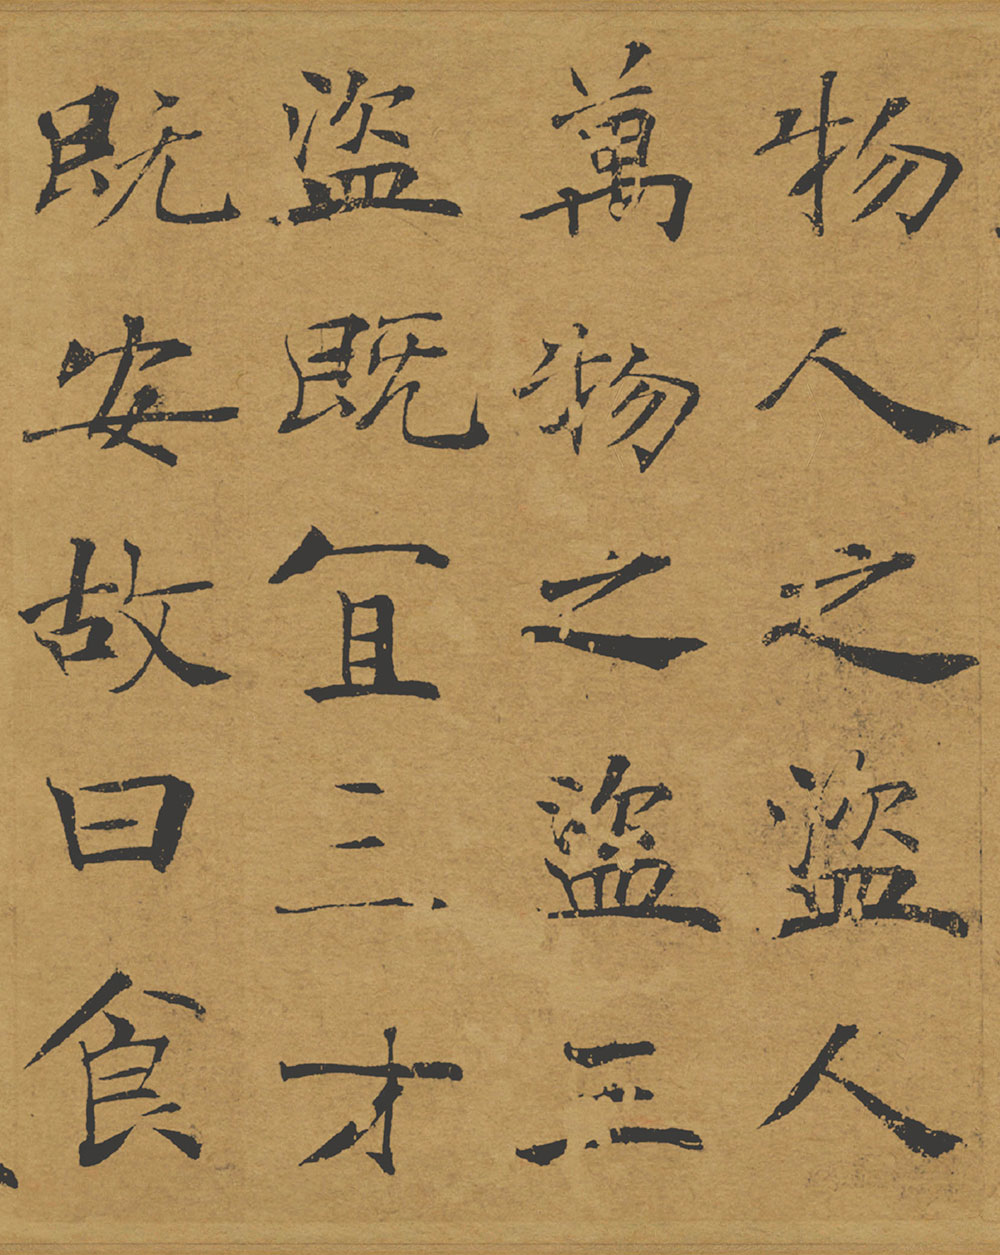 物人之盗人
萬物之盗三
盗既冝三才
既安故曰食